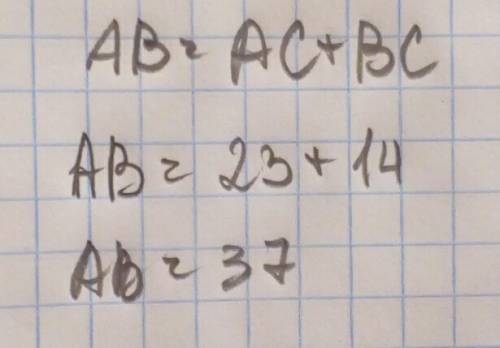 AB = AC + BC
AB = 23 + 14
AB = 37